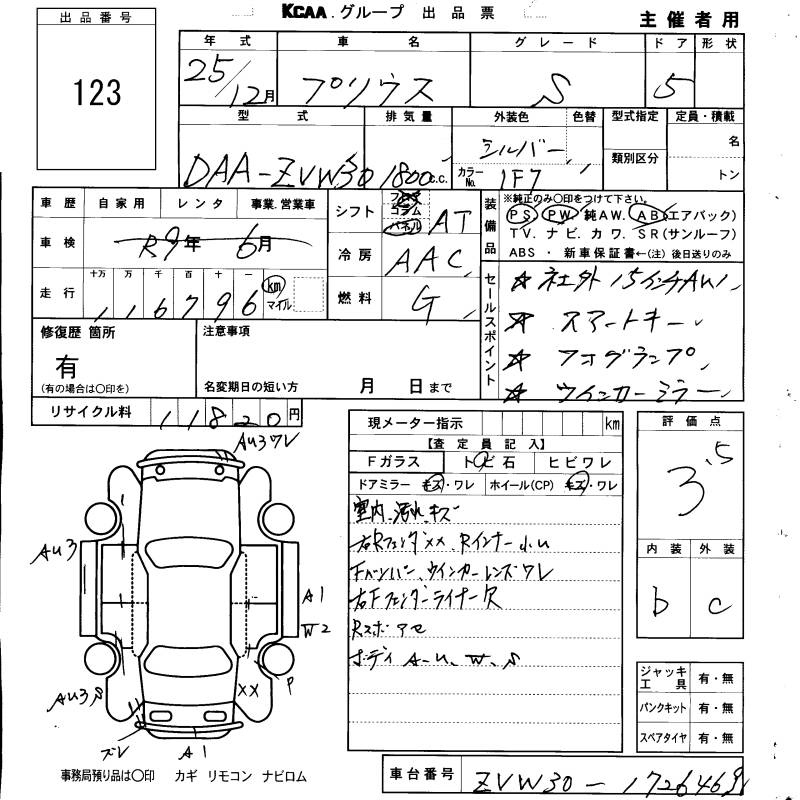 KCAA.グループ 出品票
主催者用
出品番号
123
年式 車名 グレード ドア 形状
25/12月 プリウス S 5
型式 排気量 外装色 色替 型式指定 定員・積載
DAA-ZVW30 1800c.c. シルバー 名
カラーNo. 1F7 類別区分 トン
車歴 自家用 レンタ 事業.営業車
シフト フロア コラム パネル AT
装備品 ※純正のみ○印をつけて下さい。
PS PW 純AW. AB(エアバック)
TV. ナビ. カワ. SR(サンルーフ)
ABS ・ 新車保証書←(注) 後日送りのみ
車検 R9年 6月
冷房 AAC
走行 十万 万 千 百 十 一
116796 km マイル
燃料 G
セールスポイント
☆ 社外15インチAW
☆ スマートキー
☆ フォグランプ
☆ ウインカーミラー
修復歴 箇所 注意事項
有
(有の場合は○印を) 名変期日の短い方 月 日まで
リサイクル料 11820円
現メーター指示 km
【査定員記入】
Fガラス トビ石 ヒビワレ
ドアミラー キズ・ワレ ホイール(CP) キズ・ワレ
室内、汚れ、キズ
右RフェンダXX、Rインナー小U
Fバンパー、ウインカーレンズワレ
右Fフェンダーライナー欠
ボディ A-U、W、S
評価点
3.5
内装 外装
b c
AU3ワレ
AU3
A1
W2
AU3S
XX
P
ズレ
A1
ジャッキ工具 有・無
パンクキット 有・無
スペアタイヤ 有・無
事務局預り品は○印 カギ リモコン ナビロム
車台番号 ZVW30-1726469